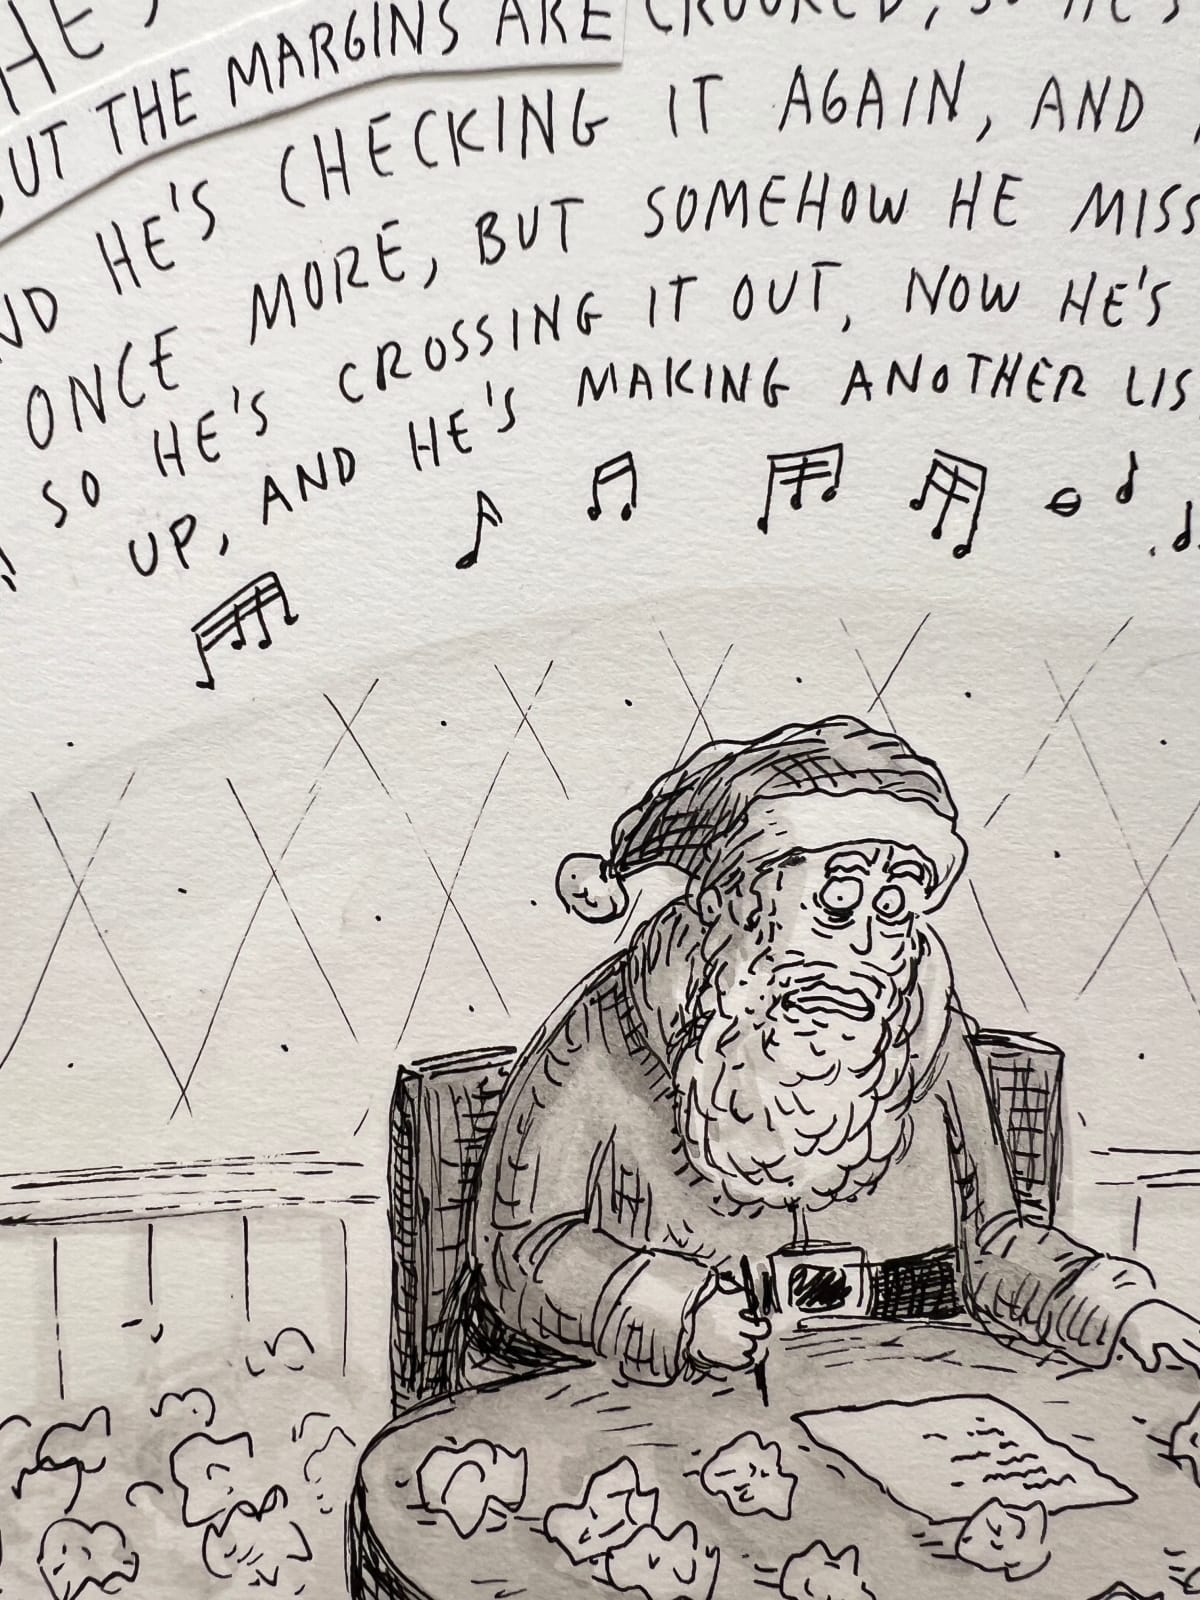 HE'S
BUT THE MARGINS ARE CROOKED, SO HE'S
AND HE'S CHECKING IT AGAIN, AND
ONCE MORE, BUT SOMEHOW HE MISS
SO HE'S CROSSING IT OUT, NOW HE'S
UP, AND HE'S MAKING ANOTHER LIS